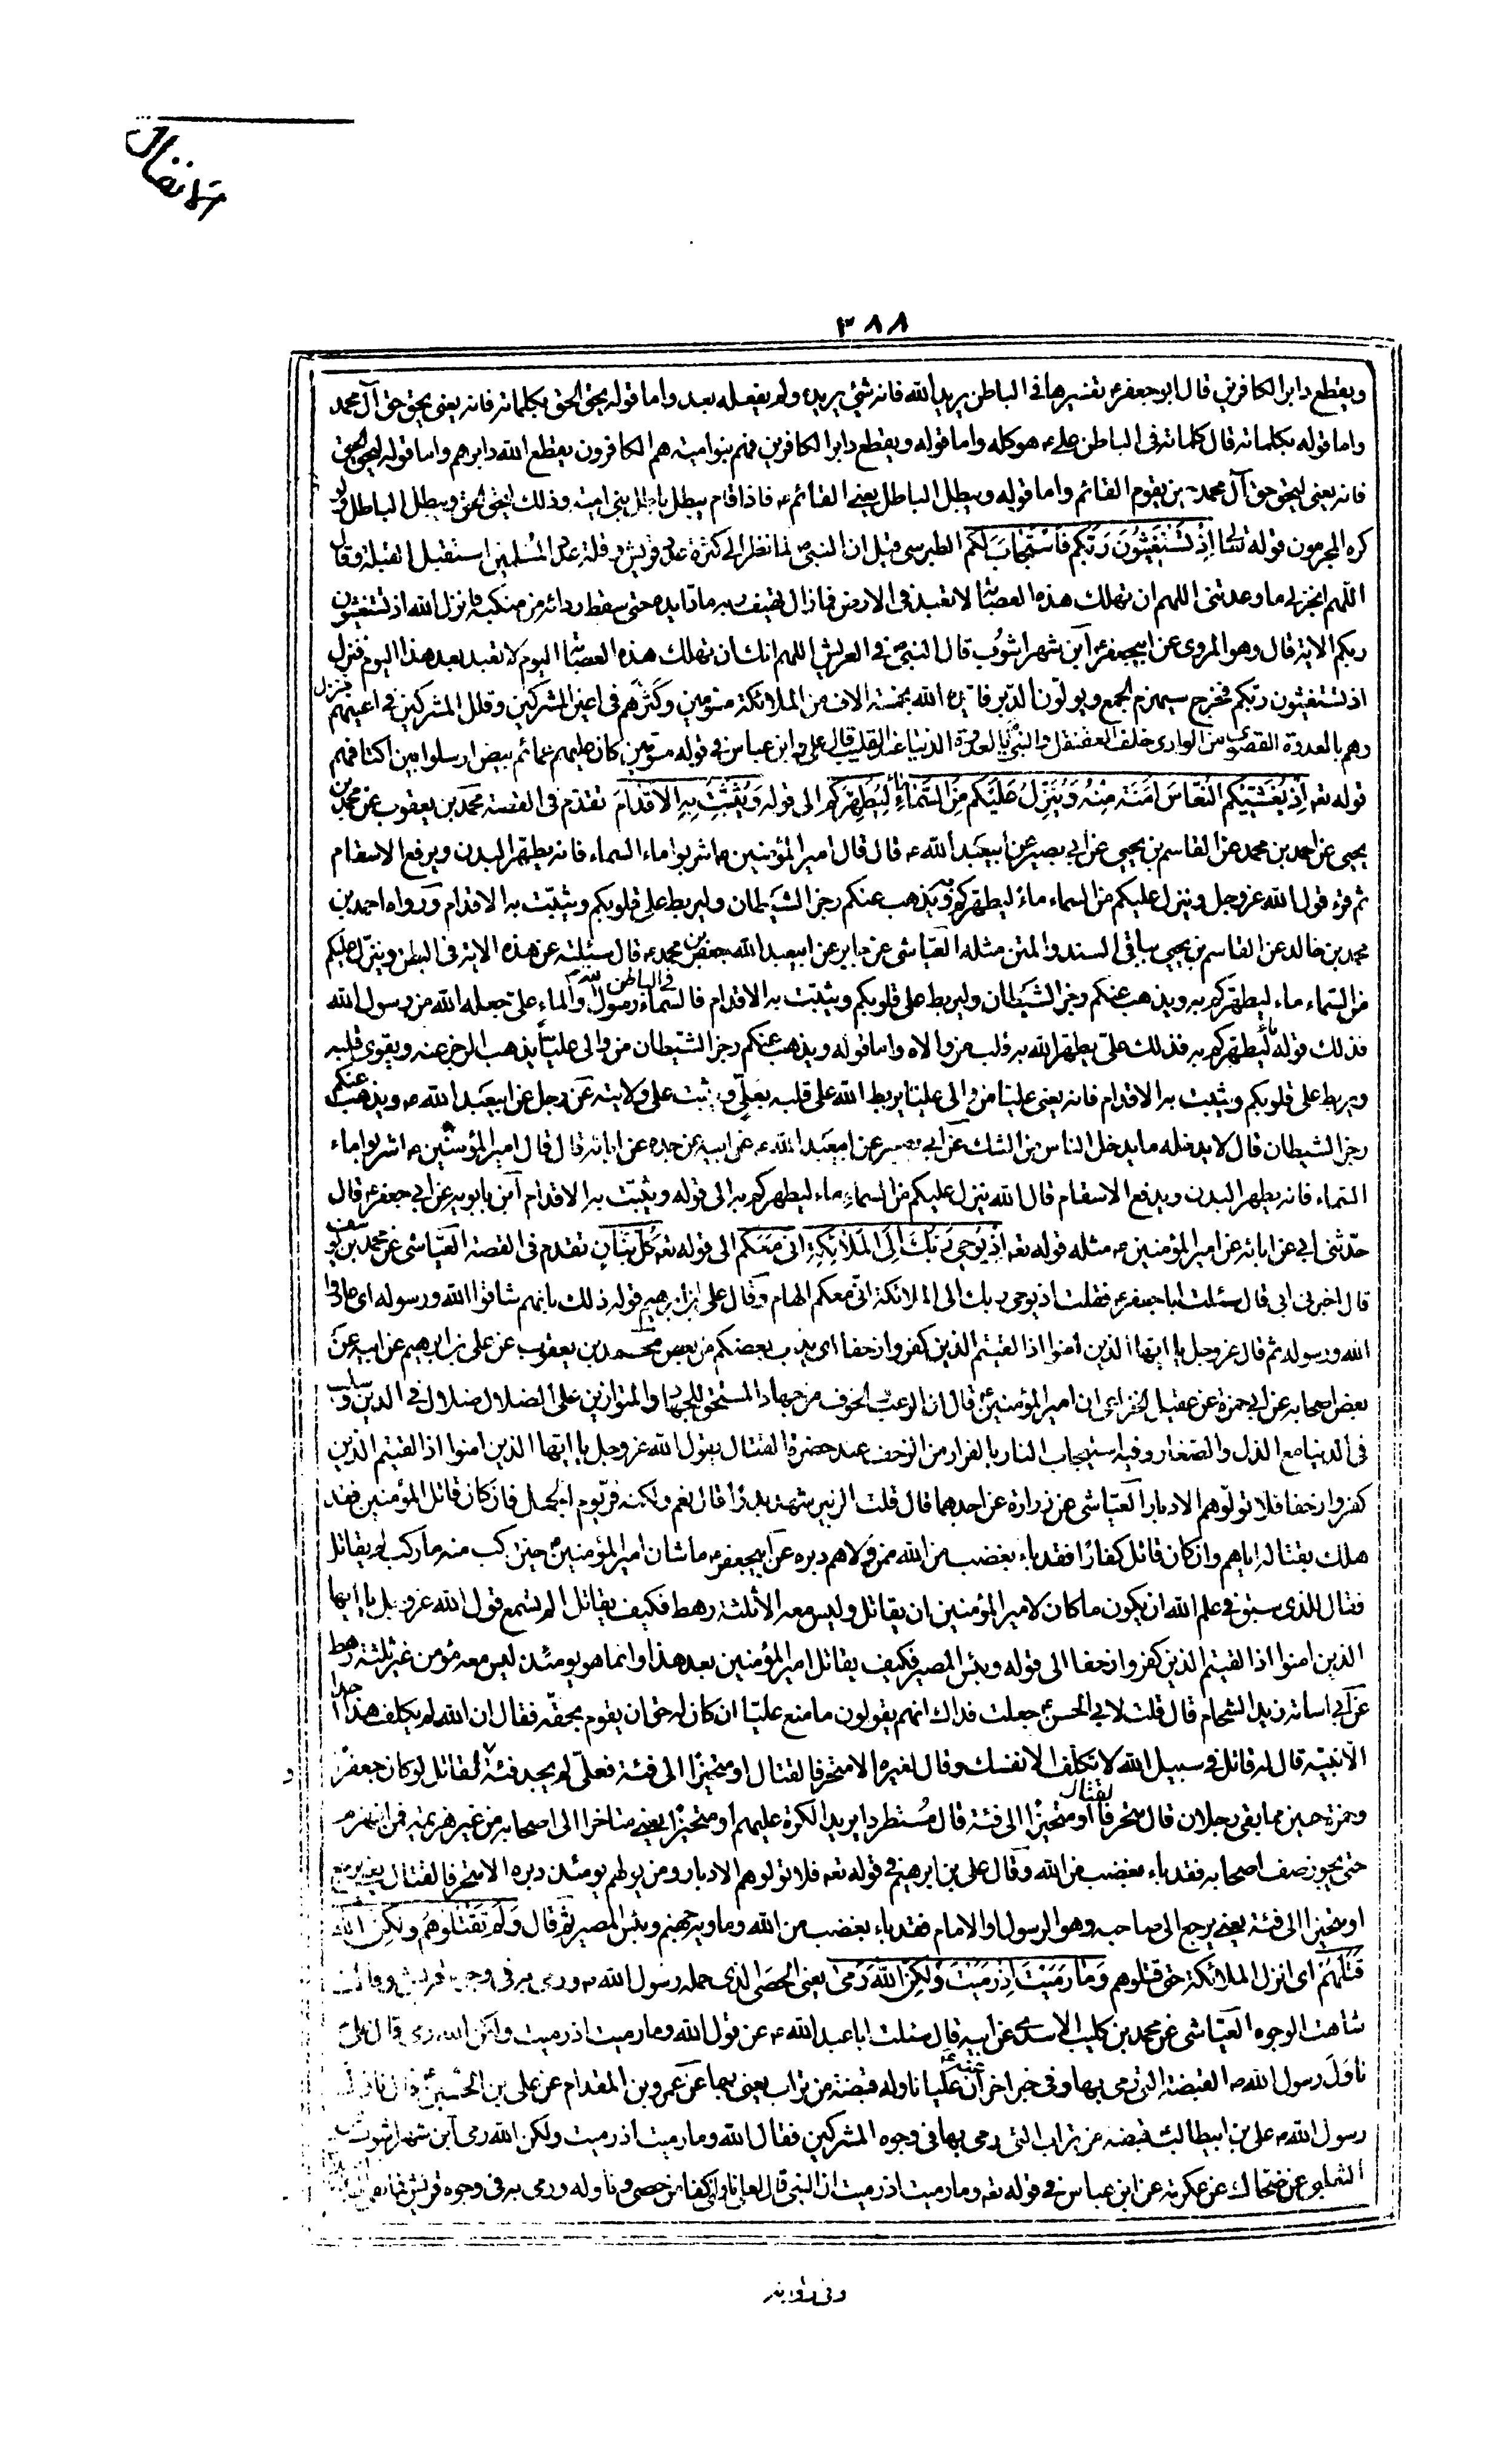 الانفال
٣٨٨
ويقطع دابر الكافرين قال ابو جعفر ع تفسيرها فى الباطن يريد الله فانه شئ يريده ولم يفعله بعد واما قوله يحق الحق بكلماته فانه يعنى يحق حق آل محمد
واما قوله بكلماته قال كلماته فى الباطن على ع هو كله واما قوله ويقطع دابر الكافرين فهم بنو امية هم الكافرون يقطع الله دابرهم واما قوله ليحق الحق
فانه يعنى ليحق حق آل محمد حين يقوم القائم واما قوله ويبطل الباطل يعنى القائم ع فاذا قام يبطل باطل بنى امية وذلك ليحق الحق ويبطل الباطل ولو
كره المجرمون قوله تعالى اِذْ تَسْتَغيثُونَ رَبَّكُم فَاسْتَجابَ لَكُم الطبرسى قيل ان النبى ص لما نظر الى كثرة عدد المشركين وقلة عدد المسلمين استقبل القبلة وقال
اللهم انجز لى ما وعدتنى اللهم ان تهلك هذه العصابة لا تعبد فى الارض فما زال يهتف به مادا يديه حتى سقط ردائه من منكبه فانزل الله اذ تستغيثون
ربكم الاية قال وهو المروى عن ابيجعفر ع ابن شهراشوب قال النبى ص فى العريش اللهم انك ان تهلك هذه العصابة اليوم لا تعبد بعد هذا اليوم فنزل
اذ تستغيثون ربكم فخرج سيهزم الجمع ويولون الدبر فايده الله بخمسة الاف من الملائكة مسومين وكثرهم فى اعين المشركين وقلل المشركين فى اعينهم فنزل
وهم بالعدوة القصوى من الوادى خلف العقنقل والنبى بالعدوة الدنيا عند القليب قال على وابن عباس فى قوله مسومين كان عليهم عمائم بيض ارسلوا بين اكتافهم
قوله تعه اِذْ يُغَشِّيكُمُ النُّعاسَ اَمَنَةً مِنْهُ وَيُنَزِّلُ عَلَيْكُم مِنَ السَّمآءِ مآءً لِيُطَهِّرَكُم الى قوله وَيُثَبِّتَ بِهِ الْاَقْدامَ تقدم فى القصة محمد بن يعقوب عن محمد بن
يحيى عن احمد بن محمد عن القاسم بن يحيى عن ابى بصير عن ابيعبد الله ع قال قال امير المؤمنين ع اشربوا ماء السماء فانه يطهر البدن ويرفع الاسقام
ثم قرء قول الله عز وجل وينزل عليكم من السماء ماء ليطهركم به ويذهب عنكم رجز الشيطان وليربط على قلوبكم ويثبت به الاقدام ورواه احمد بن
محمد بن خالد عن القاسم بن يحيى بباقى السند والمتن مثله العياشى عن جابر عن ابيعبد الله جعفر بن محمد ع قال سئلته عن هذه الاية فى البطن وينزل عليكم
من السماء ماء ليطهركم به ويذهب عنكم رجز الشيطان وليربط على قلوبكم ويثبت به الاقدام قال السماء فى الباطن رسول الله ص والماء على جعله الله من رسول الله
فذلك قوله ماء ليطهركم به فذلك على يطهر الله به قلب من والاه واما قوله ويذهب عنكم رجز الشيطان من والى عليا يذهب الرجز عنه ويقوى قلبه
ويربط على قلوبكم ويثبت به الاقدام فانه يعنى عليا من والى عليا يربط الله على قلبه بعلى وثبت على ولايته عن رجل عن ابيعبد الله ع ويذهب عنكم
رجز الشيطان قال لا يدخله ما يدخل الناس من الشك عن ابى بصير عن ابيعبد الله ع عن ابيه عن جده عن ابائه قال قال امير المؤمنين ع اشربوا ماء
السماء فانه يطهر البدن ويدفع الاسقام قال الله ينزل عليكم من السماء ماء ليطهركم به الى قوله ويثبت به الاقدام ابن بابويه عن ابى جعفر ع قال
حدثنى ابى عن ابائه عن امير المؤمنين ع مثله قوله تعه اِذْ يُوحى رَبُّكَ اِلَى الْمَلآئِكَةِ اَنّى مَعَكُم الى قوله تعه كُلَّ بَنانٍ تقدم فى القصة العياشى عن محمد بن يوسف
قال اخبرنى ابى قال سئلت ابا جعفر ع فقلت اذ يوحى ربك الى الملائكة انى معكم الهام وقال على بن ابرهيم قوله ذلك بانهم شاقوا الله ورسوله اى عادوا
الله ورسوله ثم قال عز وجل يا ايها الذين امنوا اذا لقيتم الذين كفروا زحفا اى يدنو بعضكم من بعض محمد بن يعقوب عن على بن ابرهيم عن ابيه عن
بعض اصحابه عن ابى حمزة عن عقيل الخزاعى ان امير المؤمنين ع قال ان الرعب والخوف من جهاد المستحق للجهاد والمتوازين على الضلال ضلال فى الدين وسلب
فى الدنيا مع الذل والصغار وفيه استيجاب النار بالفرار من الزحف عند حضرة القتال يقول الله عز وجل يا ايها الذين امنوا اذا لقيتم الذين
كفروا زحفا فلا تولوهم الادبار العياشى عن زرارة عن احدهما قال قلت الزبير شهد بدرا قال نعم ولكنه فر يوم الجمل فان كان قاتل المؤمنين فقد
هلك بقتاله اياهم وان كان قاتل كفارا فقد باء بغضب من الله حين ولاهم دبره عن ابيجعفر ع ما شان امير المؤمنين ع حين ركب منه ما ركب لم يقاتل
فقال للذى سبق فى علم الله ان يكون ما كان لامير المؤمنين ان يقاتل وليس معه الا ثلثة رهط فكيف يقاتل الم تسمع قول الله عز وجل يا ايها
الذين امنوا اذا لقيتم الذين كفروا زحفا الى قوله وبئس المصير فكيف يقاتل امير المؤمنين بعد هذا وانما هو يومئذ ليس معه مؤمن غير ثلثة رهط
عن ابى اسامة زيد الشحام قال قلت لابى الحسن ع جعلت فداك انهم يقولون ما منع عليا ان كان له حق ان يقوم بحقه فقال ان الله لم يكلف هذا احدا
الا نبيه قال له قاتل فى سبيل الله لا تكلف الا نفسك وقال لغيره الا متحرفا لقتال او متحيزا الى فئة فعلى لم يجد فئة ولو وجد فئة لقاتل لو كان جعفر
وحمزة حيين مما بقى رجلان قال متحرفا لقتال او متحيزا الى فئة قال متطردا يريد الكرة عليهم او متحيزا يعنى متاخرا الى اصحابه من غير هزيمة فمن انهزم
حتى يجوز صف اصحابه فقد باء بغضب من الله وقال على بن ابرهيم فى قوله تعه فلا تولوهم الادبار ومن يولهم يومئذ دبره الا متحرفا لقتال يعنى يرجع
او متحيزا الى فئة يعنى يرجع الى صاحبه وهو الرسول او الامام فقد باء بغضب من الله وماويه جهنم وبئس المصير ثم قال وَلَمْ تَقْتُلُوهُمْ وَلكِنَّ اللهَ
قَتَلَهُمْ اى انزل الملائكة حتى قتلوهم وَما رَمَيْتَ اِذْ رَمَيْتَ وَلكِنَّ اللهَ رَمى يعنى الحصى الذى حمله رسول الله ص ورمى به فى وجوه قريش وقال
شاهت الوجوه العياشى عن محمد بن كليب الاسدى عن ابيه قال سئلت ابا عبد الله ع عن قول الله وما رميت اذ رميت ولكن الله رمى قال على
ناول رسول الله ص القبضة التى رمى بها وفى خبر اخر عنه ع ان عليا ناوله قبضة من تراب يعنى رمى بها عن عمرو بن المقدام عن على بن الحسين ع قال ناول
رسول الله ص على بن ابيطالب قبضة من تراب التى رمى بها فى وجوه المشركين فقال الله وما رميت اذ رميت ولكن الله رمى ابن شهراشوب
الثعلبى عن ضحاك عن عكرمة عن ابن عباس فى قوله تعه وما رميت اذ رميت ان النبى قال لعلى ناولنى كفا من حصى وناوله ورمى به فى وجوه قريش فما بقى
وفى رواية